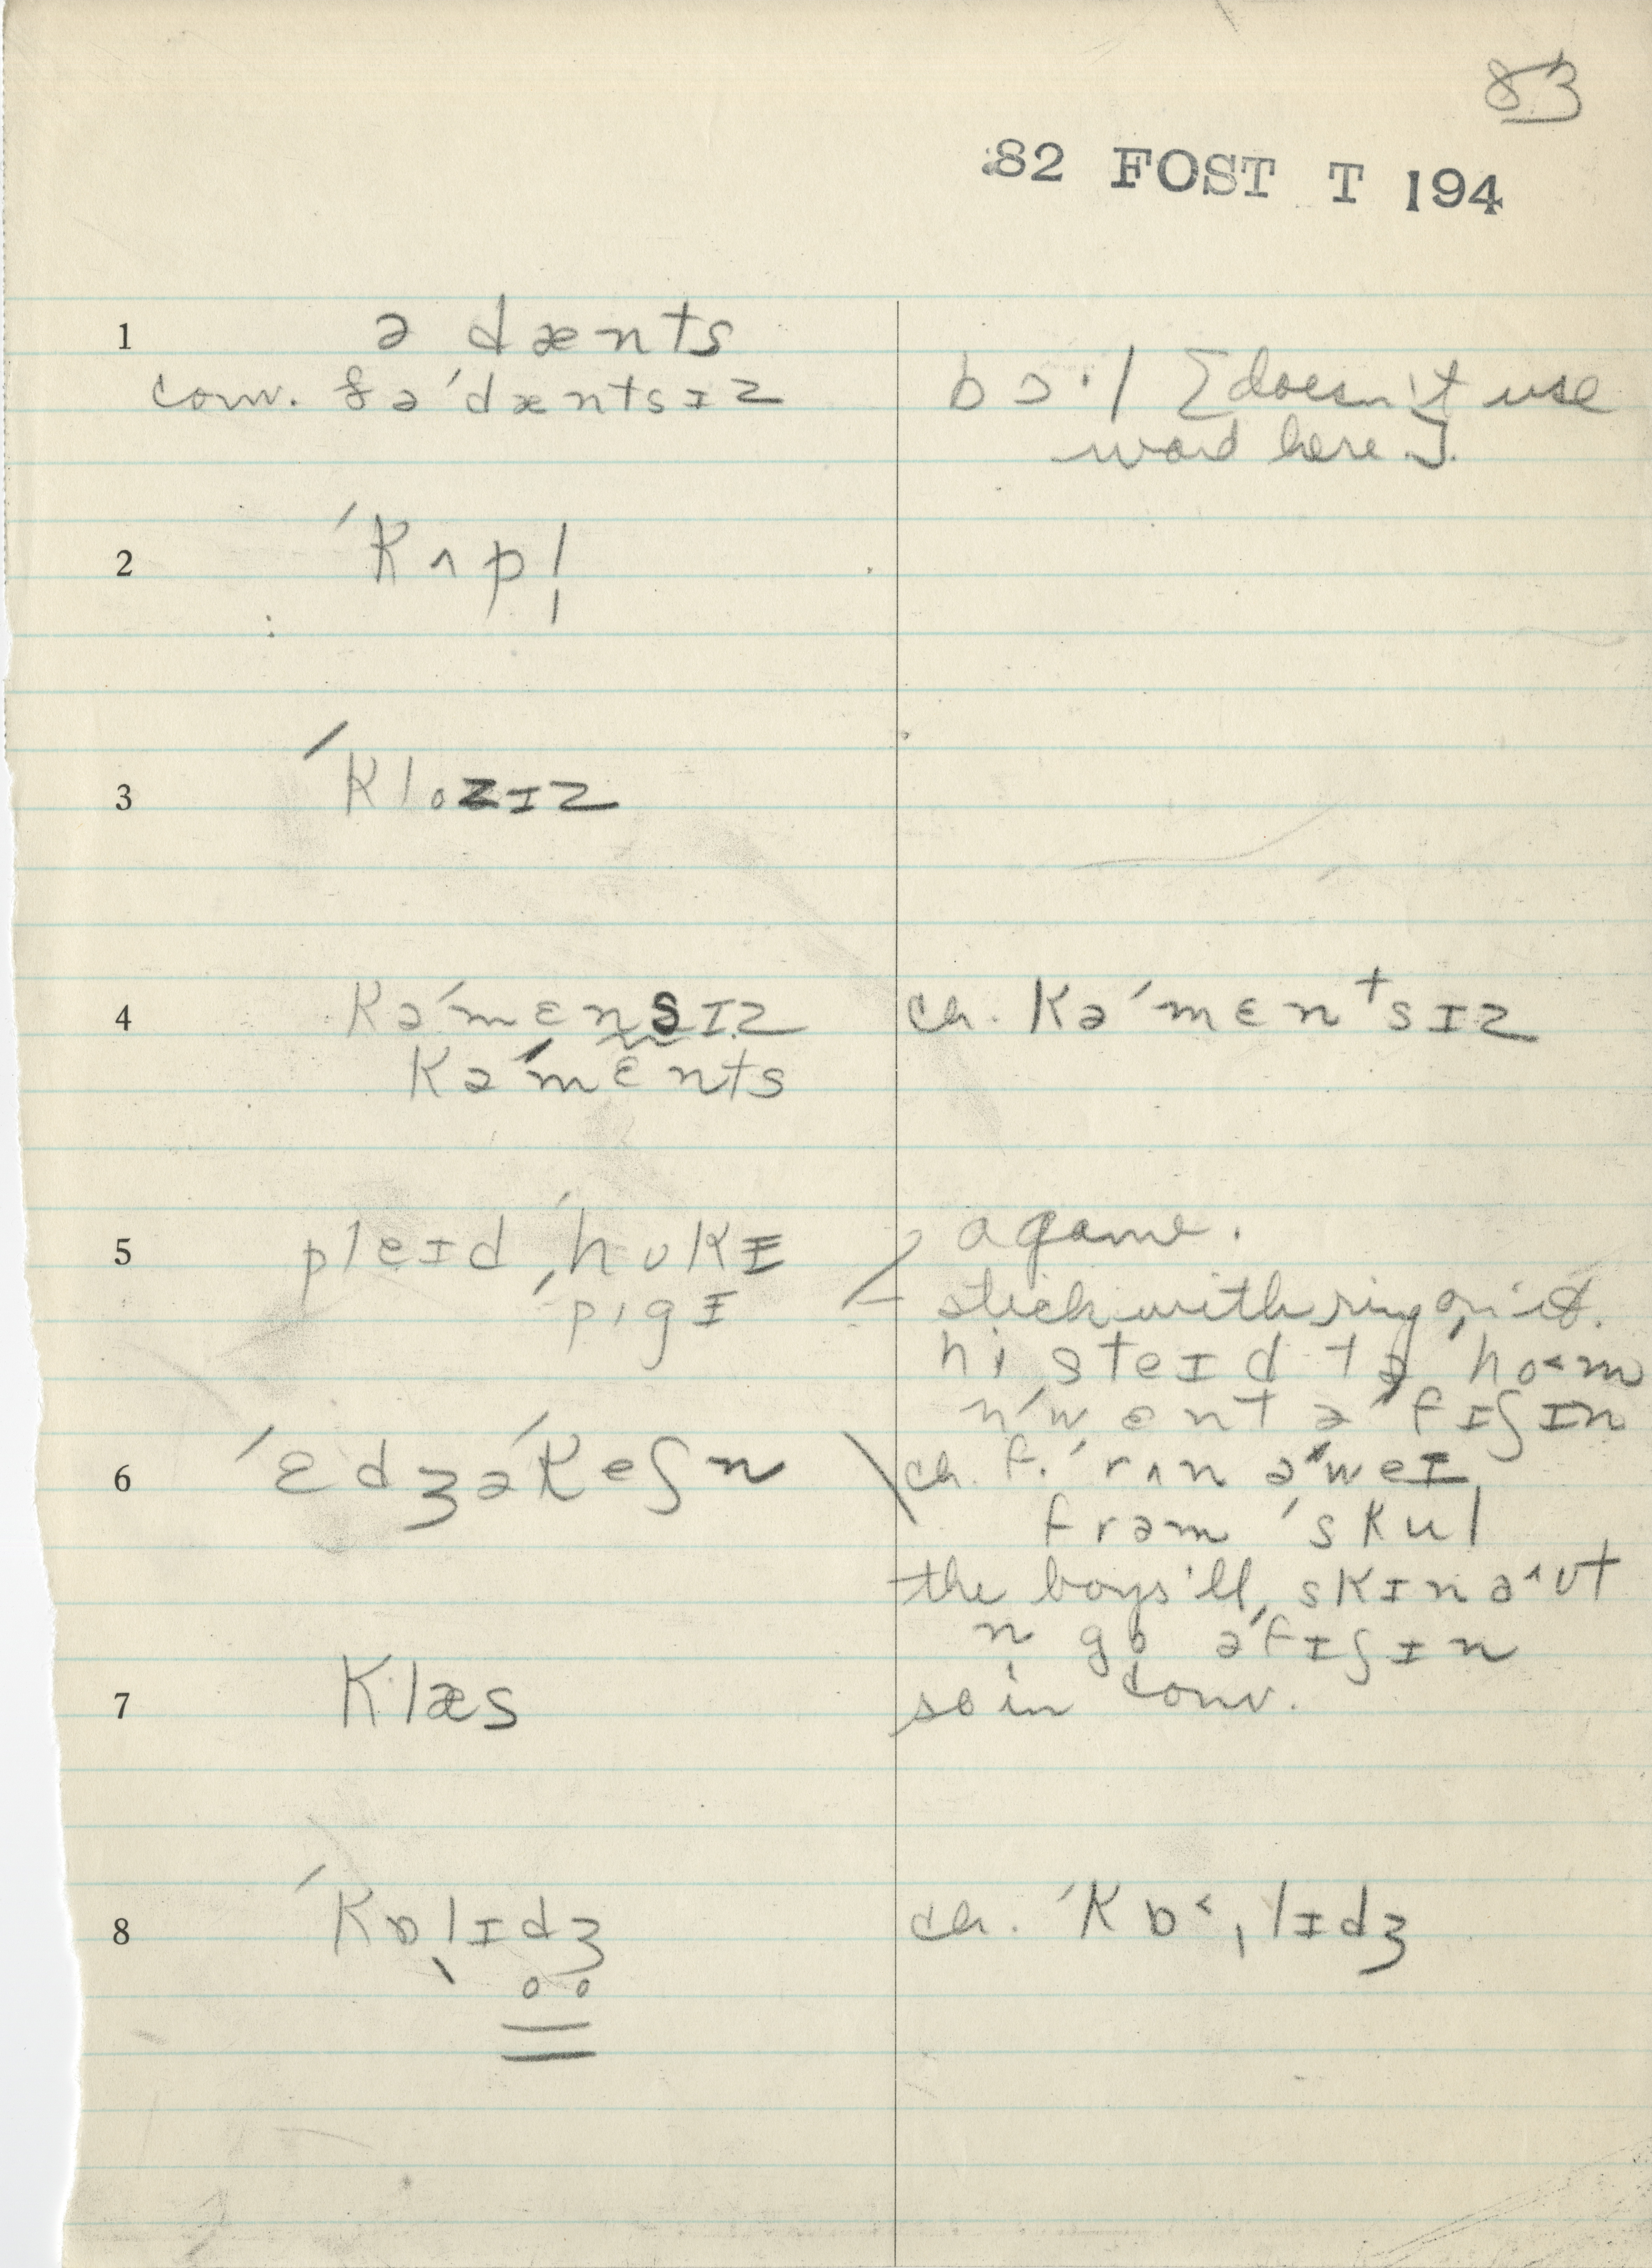 83
82 FOST T 194
1 ə dænts
conv. & ə ˈdæntsɪz
bɔ·l [doesn't use
word here].
2 ˈkʌpl̩
3 ˈklozɪz
4 kəˈmɛnsɪz
kəˈmɛnts
ch. kəˈmɛnᵗsɪz
5 pleɪd ˈhʊkɪ
ˌpigɪ
a game.
stick with ring on it.
hi steɪd tə ˈho˂m
n ˈwent əˈfɪʃɪn
6 ˈɛdʒəˈkeʃn
ch. f. ˈrʌn əˈweɪ
frəm ˈskul
the boys'll skɪn ə˄ʊt
n go əˈfɪʃɪn
7 klæs
so in conv.
8 ˈkɒˌlɪdʒ
ch. ˈkɒ˂ˌlɪdʒ